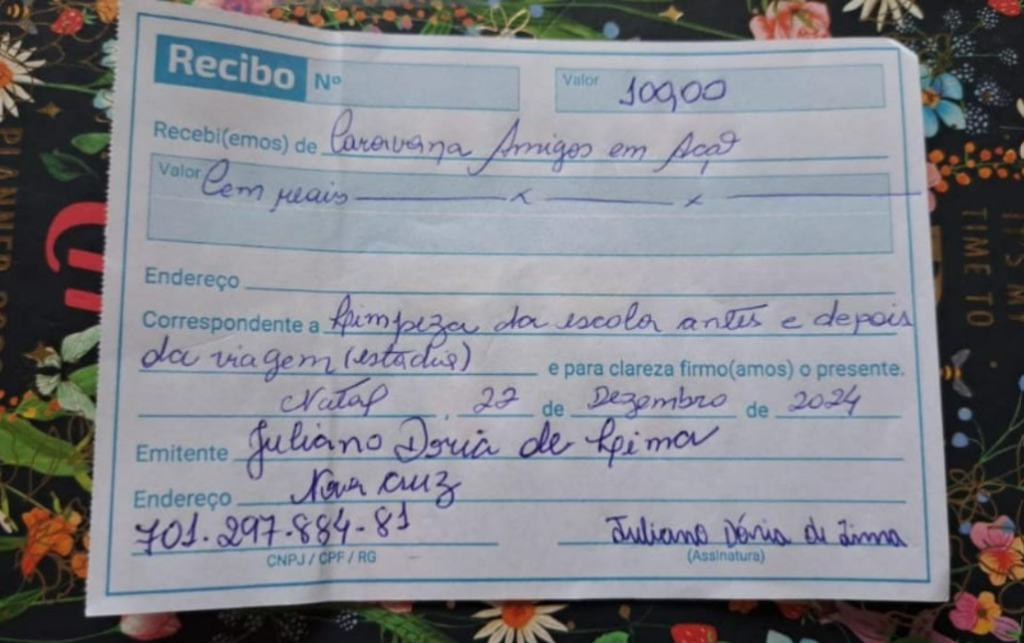 Recibo Nº Valor 100,00
Recebi(emos) de Caravana Amigos em Açaø
Valor Cem reais ——— x ——— x ———
Endereço
Correspondente a Limpeza da escola antes e depois
da viagem (estadia) e para clareza firmo(amos) o presente.
Natal, 22 de Dezembro de 2024
Emitente Juliano Dória de Lima
Endereço Nova Cruz
701.297.884-81
CNPJ / CPF / RG
Juliano Dória de Lima
(Assinatura)
PLANNER
IT'S MY
TIME TO